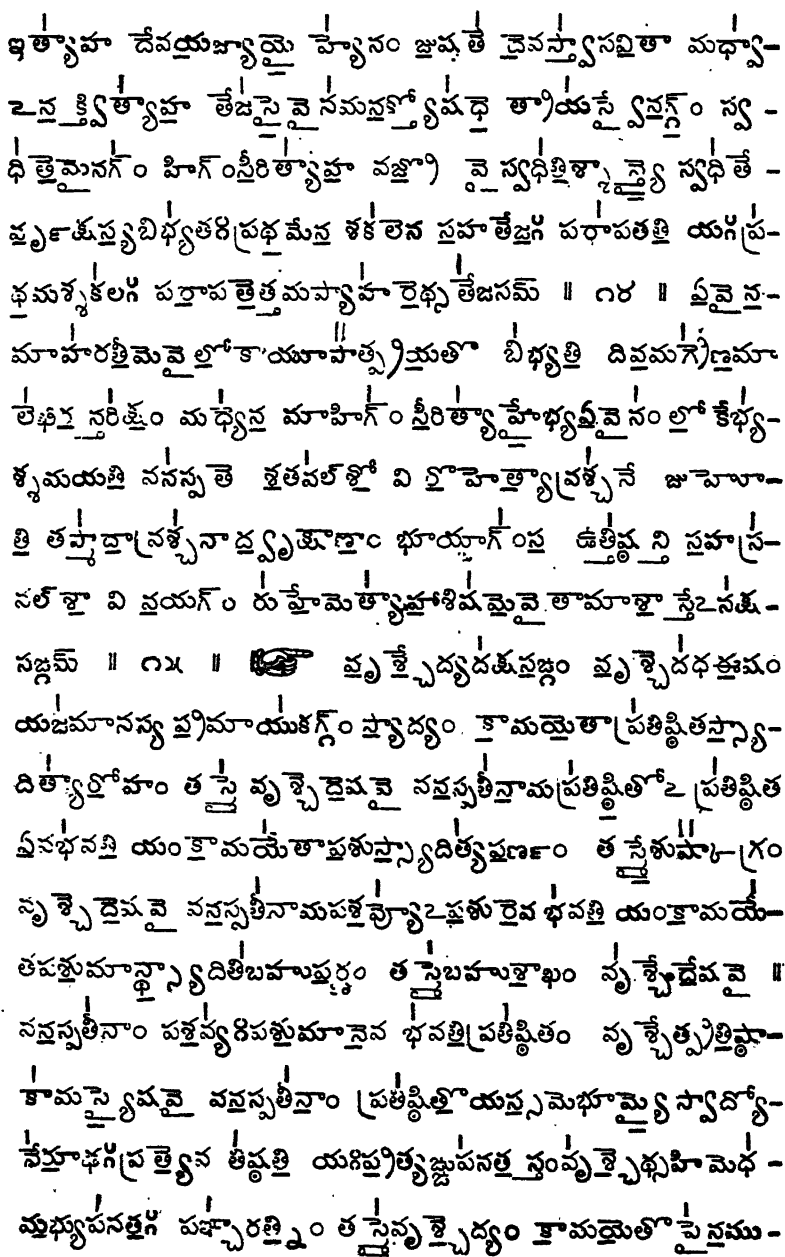 ఇత్యాహ దేవయజ్యాయై హ్యేనం జుషతే దేవస్త్వాసవితా మధ్వా-
ఽనక్త్విత్యాహ తేజసైవైనమనక్త్యోషధే త్రాయస్వైనగ్గ్ం స్వ-
ధితేమైనగ్ం హిగ్ంసీరిత్యాహ వజ్రో వై స్వధితిశ్శాన్త్యై స్వధితే-
వృక్షస్యబిభ్యతః ప్రథమేన శకలేన సహతేజః పరాపతతి యః ప్ర-
థమశ్శకలః పరాపతేత్తమప్యాహరేథ్సతేజసమ్ ॥ ౧౪ ॥ ఏవైన-
మాహరతీమేవైలోకాయూపాత్ప్రయతో బిభ్యతి దివమగ్రేణమా
లేఖీరన్తరిక్షం మధ్యేన మాహిగ్ంసీరిత్యాహైభ్యఏవైనంలోకేభ్య-
శ్శమయతి వనస్పతే శతవల్శో వి రోహేత్యావ్రశ్చనే జుహో-
తి తస్మాదావ్రశ్చనాద్వృక్షాణాం భూయాగ్ంస ఉత్తిష్ఠన్తి సహస్ర-
వల్శా వి వయగ్ం రుహేమేత్యాహాశిషమేవైతామాశాస్తేఽనక్ష-
సఙ్గమ్ ॥ ౧౫ ॥ వృశ్చేద్యదక్షసఙ్గం వృశ్చేదధఈషం
యజమానస్య ప్రమాయుకగ్గ్ం స్యాద్యం కామయేతాప్రతిష్ఠితస్స్యా-
దిత్యారోహం తస్మై వృశ్చేదేషవై వనస్పతీనామప్రతిష్ఠితోఽ ప్రతిష్ఠిత
ఏవభవతి యంకామయేతాపశుస్స్యాదిత్యపర్ణం తస్మైశుష్కాగ్రం
వృశ్చేదేషవై వనస్పతీనామపశవ్యోఽపశురేవ భవతి యంకామయే-
తపశుమాన్థ్స్యాదితిబహుపర్ణం తస్మైబహుశాఖం వృశ్చేదేషవై ॥
వనస్పతీనాం పశవ్యః పశుమానేవ భవతి ప్రతిష్ఠితం వృశ్చేత్ప్రతిష్ఠా-
కామస్యైషవై వనస్పతీనాం ప్రతిష్ఠితోయస్సమేభూమ్యై స్వాద్యో-
నేరూఢః ప్రత్యేవ తిష్ఠతి యః ప్రత్యఙ్ఙుపనతస్తంవృశ్చేథ్సహిమేధ-
మభ్యుపనతః పఞ్చారత్నిం తస్మైవృశ్చేద్యం కామయేతోపైనము-